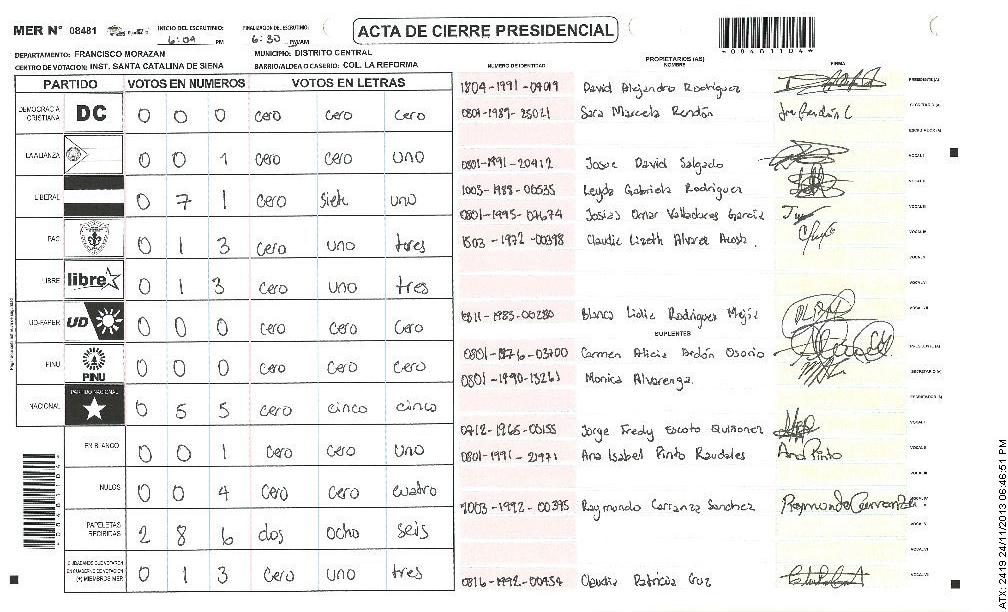 MER N° 08481
INICIO DEL ESCRUTINIO:
6:09 PM
FINALIZACION DEL ESCRUTINIO:
6:30 PM/AM
ACTA DE CIERRE PRESIDENCIAL
DEPARTAMENTO: FRANCISCO MORAZAN
MUNICIPIO: DISTRITO CENTRAL
CENTRO DE VOTACION: INST. SANTA CATALINA DE SIENA
BARRIO/ALDEA O CASERIO: COL. LA REFORMA
PARTIDO VOTOS EN NUMEROS VOTOS EN LETRAS
DEMOCRACIA CRISTIANA DC 0 0 0 cero cero cero
LA ALIANZA 0 0 1 cero cero uno
LIBERAL 0 7 1 cero siete uno
PAC 0 1 3 cero uno tres
LIBRE libre 0 1 3 cero uno tres
UD-FAPER UD 0 0 0 cero cero cero
PINU PINU 0 0 0 cero cero cero
NACIONAL PARTIDO NACIONAL 0 5 5 cero cinco cinco
EN BLANCO 0 0 1 cero cero uno
NULOS 0 0 4 cero cero cuatro
PAPELETAS RECIBIDAS 2 8 6 dos ocho seis
CIUDADANOS QUE VOTARON EN CUADERNO DE VOTACION (+) MIEMBROS MER 0 1 3 cero uno tres
NUMERO DE IDENTIDAD
PROPIETARIOS (AS)
NOMBRE
FIRMA
1804-1991-04019 David Alejandro Rodriguez PRESIDENTE (A)
0801-1989-25021 Sara Marcela Rendón SECRETARIO (A)
ESCRUTADOR (A)
0801-1991-20412 Josue David Salgado VOCAL I
1003-1988-00535 Leyda Gabriela Rodriguez VOCAL II
0801-1995-07674 Josias Omar Valladares Garcia VOCAL III
1503-1972-00398 Claudia Lizeth Alvarez Acosta VOCAL IV
VOCAL V
VOCAL VI
0311-1985-00280 Blanca Lidia Rodriguez Mejia VOCAL VII
SUPLENTES
0801-1976-03700 Carmen Alicia Bardon Osorio PRESIDENTE (A)
0801-1990-13261 Monica Alvarenga. SECRETARIO (A)
ESCRUTADOR (A)
0412-1966-00155 Jorge Fredy Escoto Quiñonez VOCAL I
0801-1991-21971 Ana Isabel Pinto Raudales Ana Pinto VOCAL II
VOCAL III
1003-1992-00395 Raymundo Carranza Sanchez Raymundo Carranza VOCAL IV
VOCAL V
VOCAL VI
0816-1992-00454 Claudia Patricia Cruz VOCAL VII
ATX: 2419 24/11/2013 06:46:51 PM